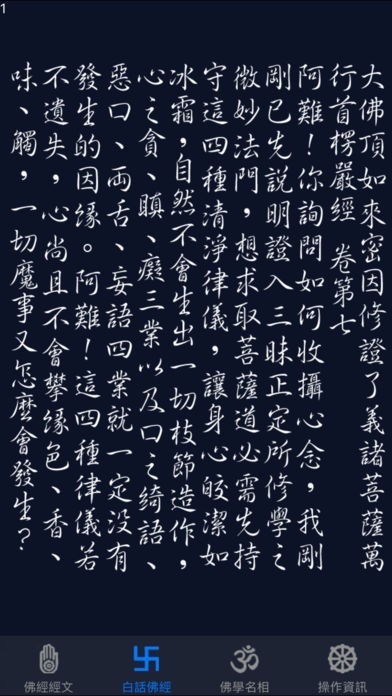 1
大佛頂如來密因修證了義諸菩薩萬
行首楞嚴經 卷第七
阿難！你詢問如何收攝心念，我剛
剛已先說明證入三昧正定所修學之
微妙法門，想求取菩薩道必需先持
守這四種清淨律儀，讓身心皎潔如
冰霜，自然不會生出一切枝節造作，
心之貪、瞋、癡三業以及口之綺語、
惡口、両舌、妄語四業就一定沒有
發生的因緣。阿難！這四種律儀若
不遺失，心尚且不會攀緣色、香、
味、觸，一切魔事又怎麼會發生？
佛經經文
白話佛經
佛學名相
操作資訊